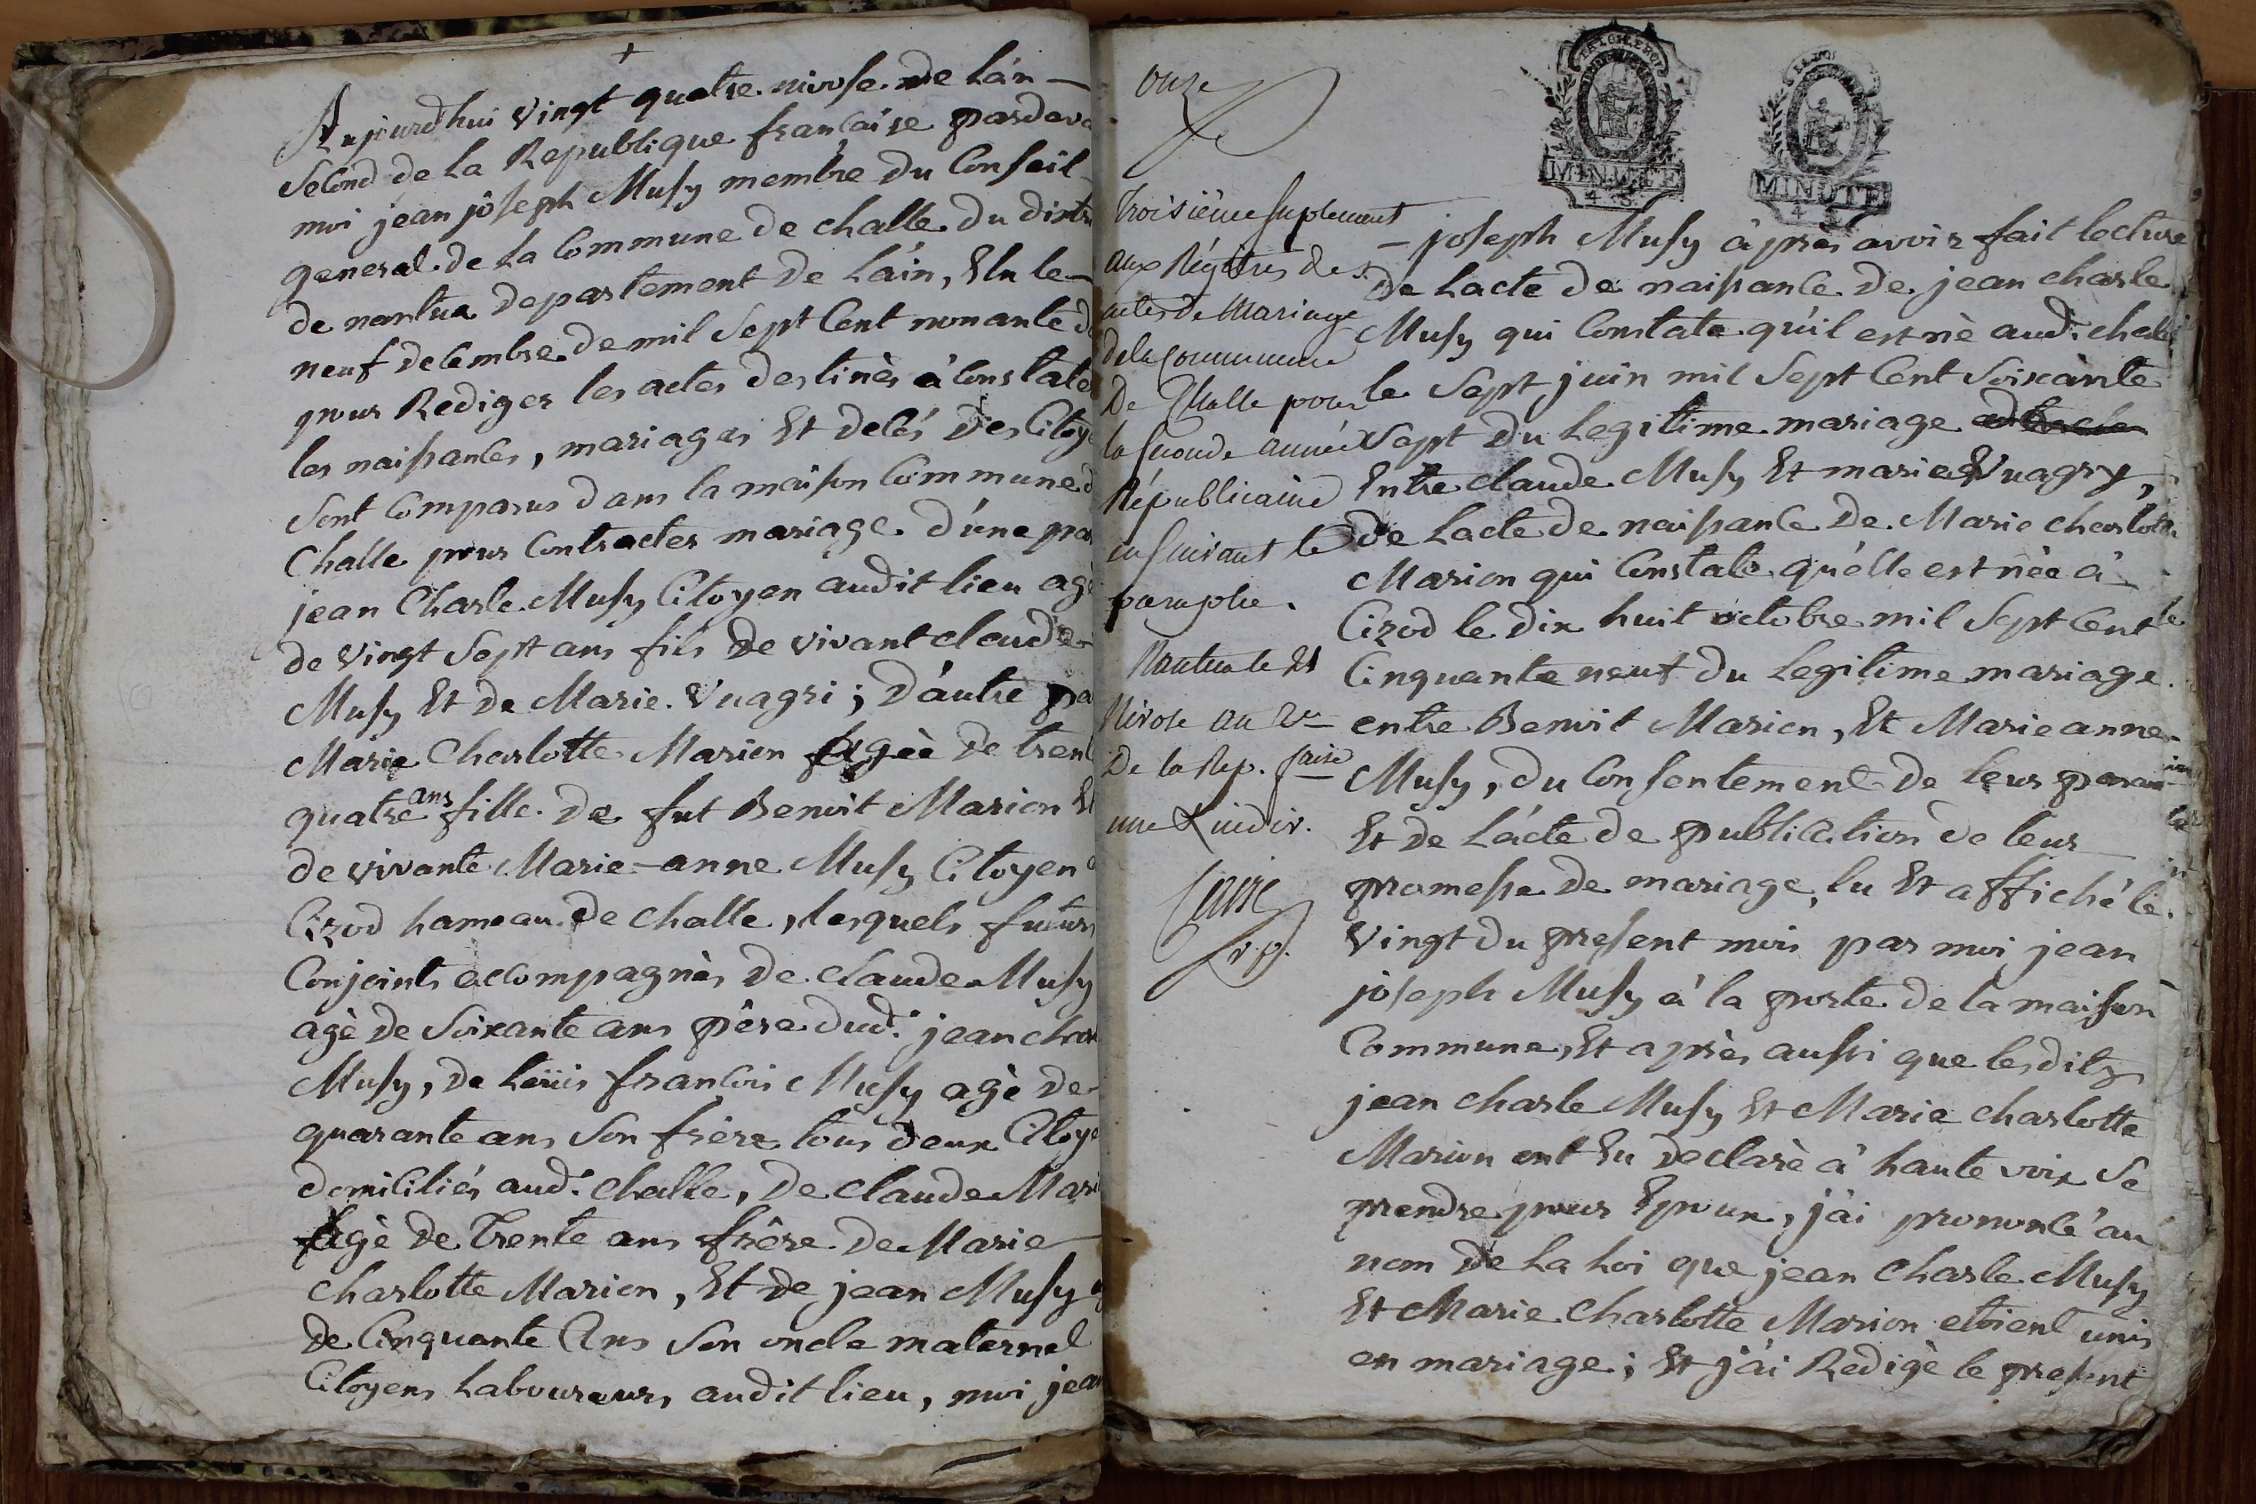 Aujourdhui vingt quatre nivose de l'an
second de la Republique françáise pardeva
moi jean jôseph Musy membre du Conseil
general de la Commune de challe du distri
de nantua departement de l'áin, Elu le
neuf decembre de mil sept Cent nonante d
pour Rediger les actes destinés á Constate
les naissances, mariages Et decés des Citoye
sont Comparus dans la maison Commune d
Challe pour Contracter mariage d'une par
jean Charle Musy Citoyen audit lieu agé
de vingt sept ans fils de vivant claude
Musy Et de Marie Vuagri; D'autre par
Marie Charlotte Marion agèe de trent
quatre ans fille de fut Benoit Marion Et
de vivante Marie-anne Musy Citoyen
Cizod hameau de challe, lesquels futurs
Conjoints accompagnès de claude Musy
agè de soixante ans pêre dud. jean char
Musy, de Loüis francois Musy agè de
quarante ans son frère tous deux Citoye
domiciliés aud. challe, de claude Mari
agè de trente ans frêre de Marie
charlotte Marion, Et de jean Musy
de Cinquante Ans son oncle maternel
Citoyens Laboureurs audit lieu, moi jean
onze
troisième suplement
aux Régîtres des
actes de Mariage
de la Commune
de Challe pour
la seconde année
Républicaine
en suivant le
paraphe.
Nantua le 21
Nivose an 2e
De la Rep. faise
une & indiv.
MINUTE
4 S.
MINUTE
4 S.
joseph Musy áprès avoir fait lecture
de Lacte de naissance de jean charle
Musy qui Constate qu'il est nè aud. challe
le sept juin mil sept Cent soixánte
sept du Legitime mariage
Entre claude Musy Et marie Vuagry,
de Lacte de naissance de Marie charlotte
Marion qui Constate qu'élle est nèe á
Cizod le dix huit octobre mil sept Cent
Cinquante neuf du Legitime mariage
entre Benoit Marion, Et Marie anne
Musy, du Consentement de leur parans
Et de L'ácte de publication de leur
promesse de mariage, lu Et affiché le
vingt du present mois par moi jean
jôseph Musy á la porte de la maison
Commune, Et après aussi que lesdits
jean charle Musy Et Marie charlotte
Marion ont Eu declarè á haute voix se
prendre pour Epoux, j'ái prononcé au
nom de La Loi que jean Charle Musy
Et Marie Charlotte Marion etoient unis
en mariage; Et j'ái Redigè le present